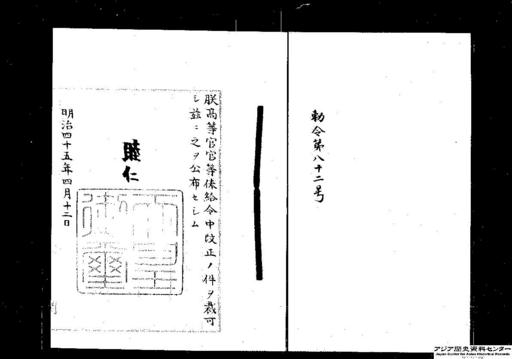 勅令第八十二号
朕高等官官等俸給令中改正ノ件ヲ裁可
シ茲ニ之ヲ公布セシム
睦仁
天皇御璽
明治四十五年四月十二日
アジア歴史資料センター
Japan Center for Asian Historical Records